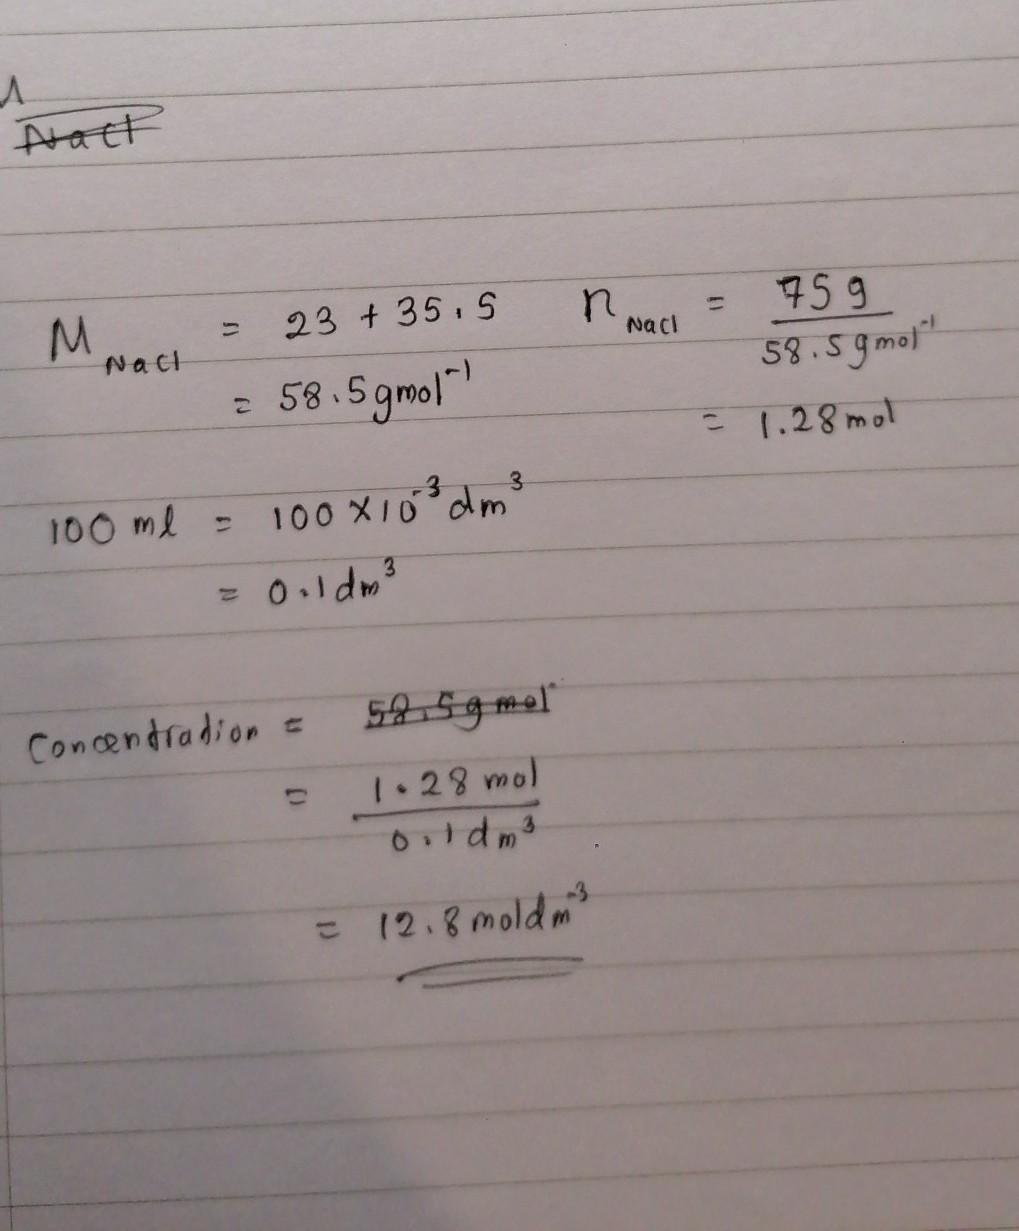 NaCl
M NaCl = 23 + 35.5
= 58.5 gmol⁻¹
n NaCl = 75 g / 58.5 gmol⁻¹
= 1.28 mol
100 ml = 100 × 10⁻³ dm³
= 0.1 dm³
Concentradion = 58.5 g mol⁻
= 1.28 mol / 0.1 dm³
= 12.8 moldm⁻³